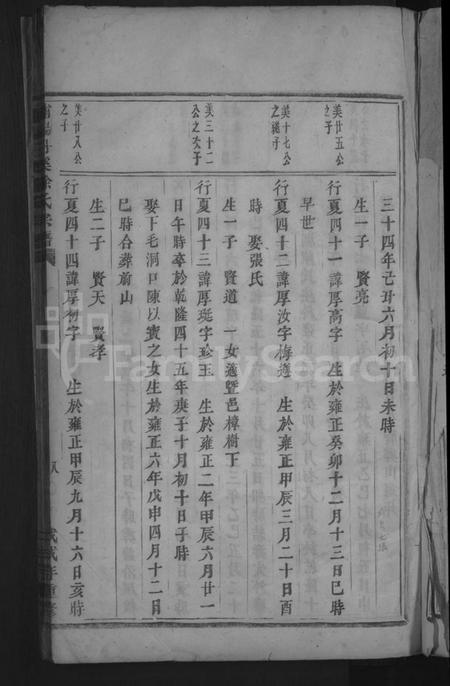 三十四年己丑六月初十日未時
生一子 賢亮
美廿五公
之子
行夏四十一諱厚高字 生於雍正癸卯十二月十三日巳時
早世
美十七公
之繼子
行夏四十二諱厚汝字梅遹 生於雍正甲辰三月二十日酉
時 娶張氏
生一子 賢道 一女適暨邑樟樹下
美三十二
公之次子
行夏四十三諱厚珽字珍玉 生於雍正二年甲辰六月廿一
日午時卒於乾隆四十五年庚子十月初十日子時
娶下毛洞口陳以賓之女生於雍正六年戊申四月十二日
巳時合葬前山
生二子 賢天 賢孝
美廿八公
之子
行夏四十四諱厚初字 生於雍正甲辰九月十六日亥時
徐氏宗譜
八
戊戌年重修
FamilySearch